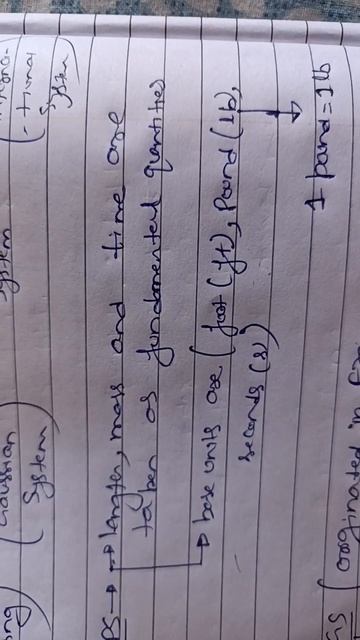 (Gaussian System)
tional System)
System
PS → → length, mass and time are
taken as fundamental quantities
→ base units are (foot (ft), pound (lb),
seconds (s))
1 pound = 1 lb
(originated in